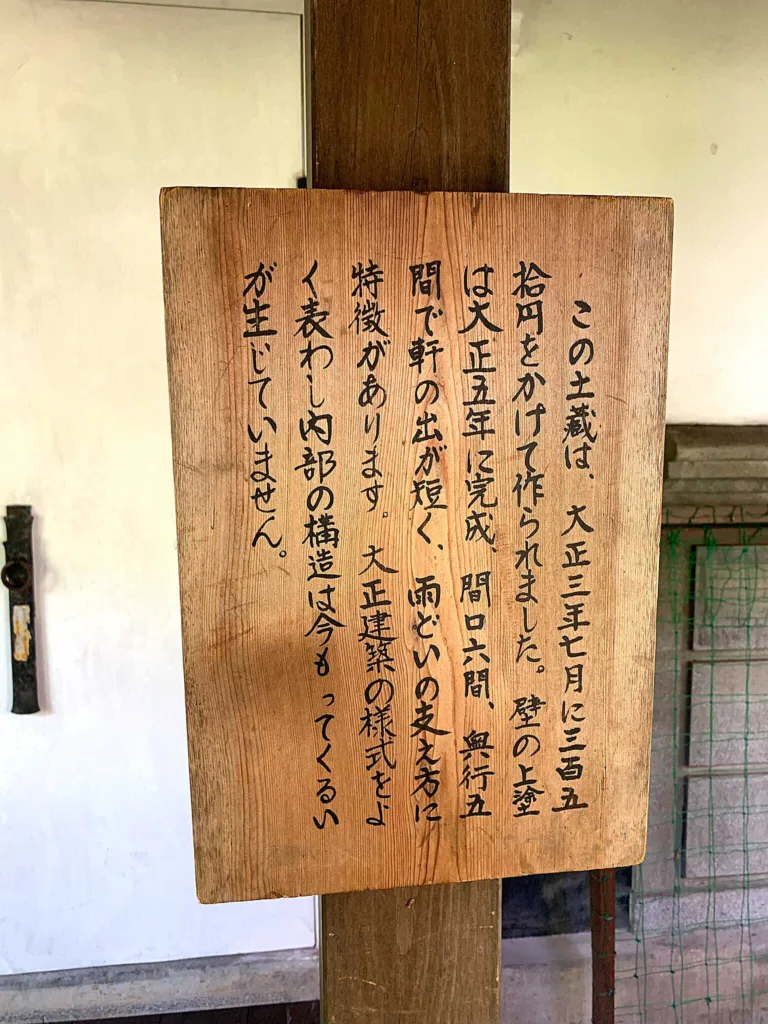 この土蔵は、大正三年七月に三百五
拾円をかけて作られました。壁の上塗
は大正五年に完成、間口六間、奥行五
間で軒の出が短く、雨どいの支え方に
特徴があります。大正建築の様式をよ
く表わし内部の構造は今もってくるい
が生じていません。